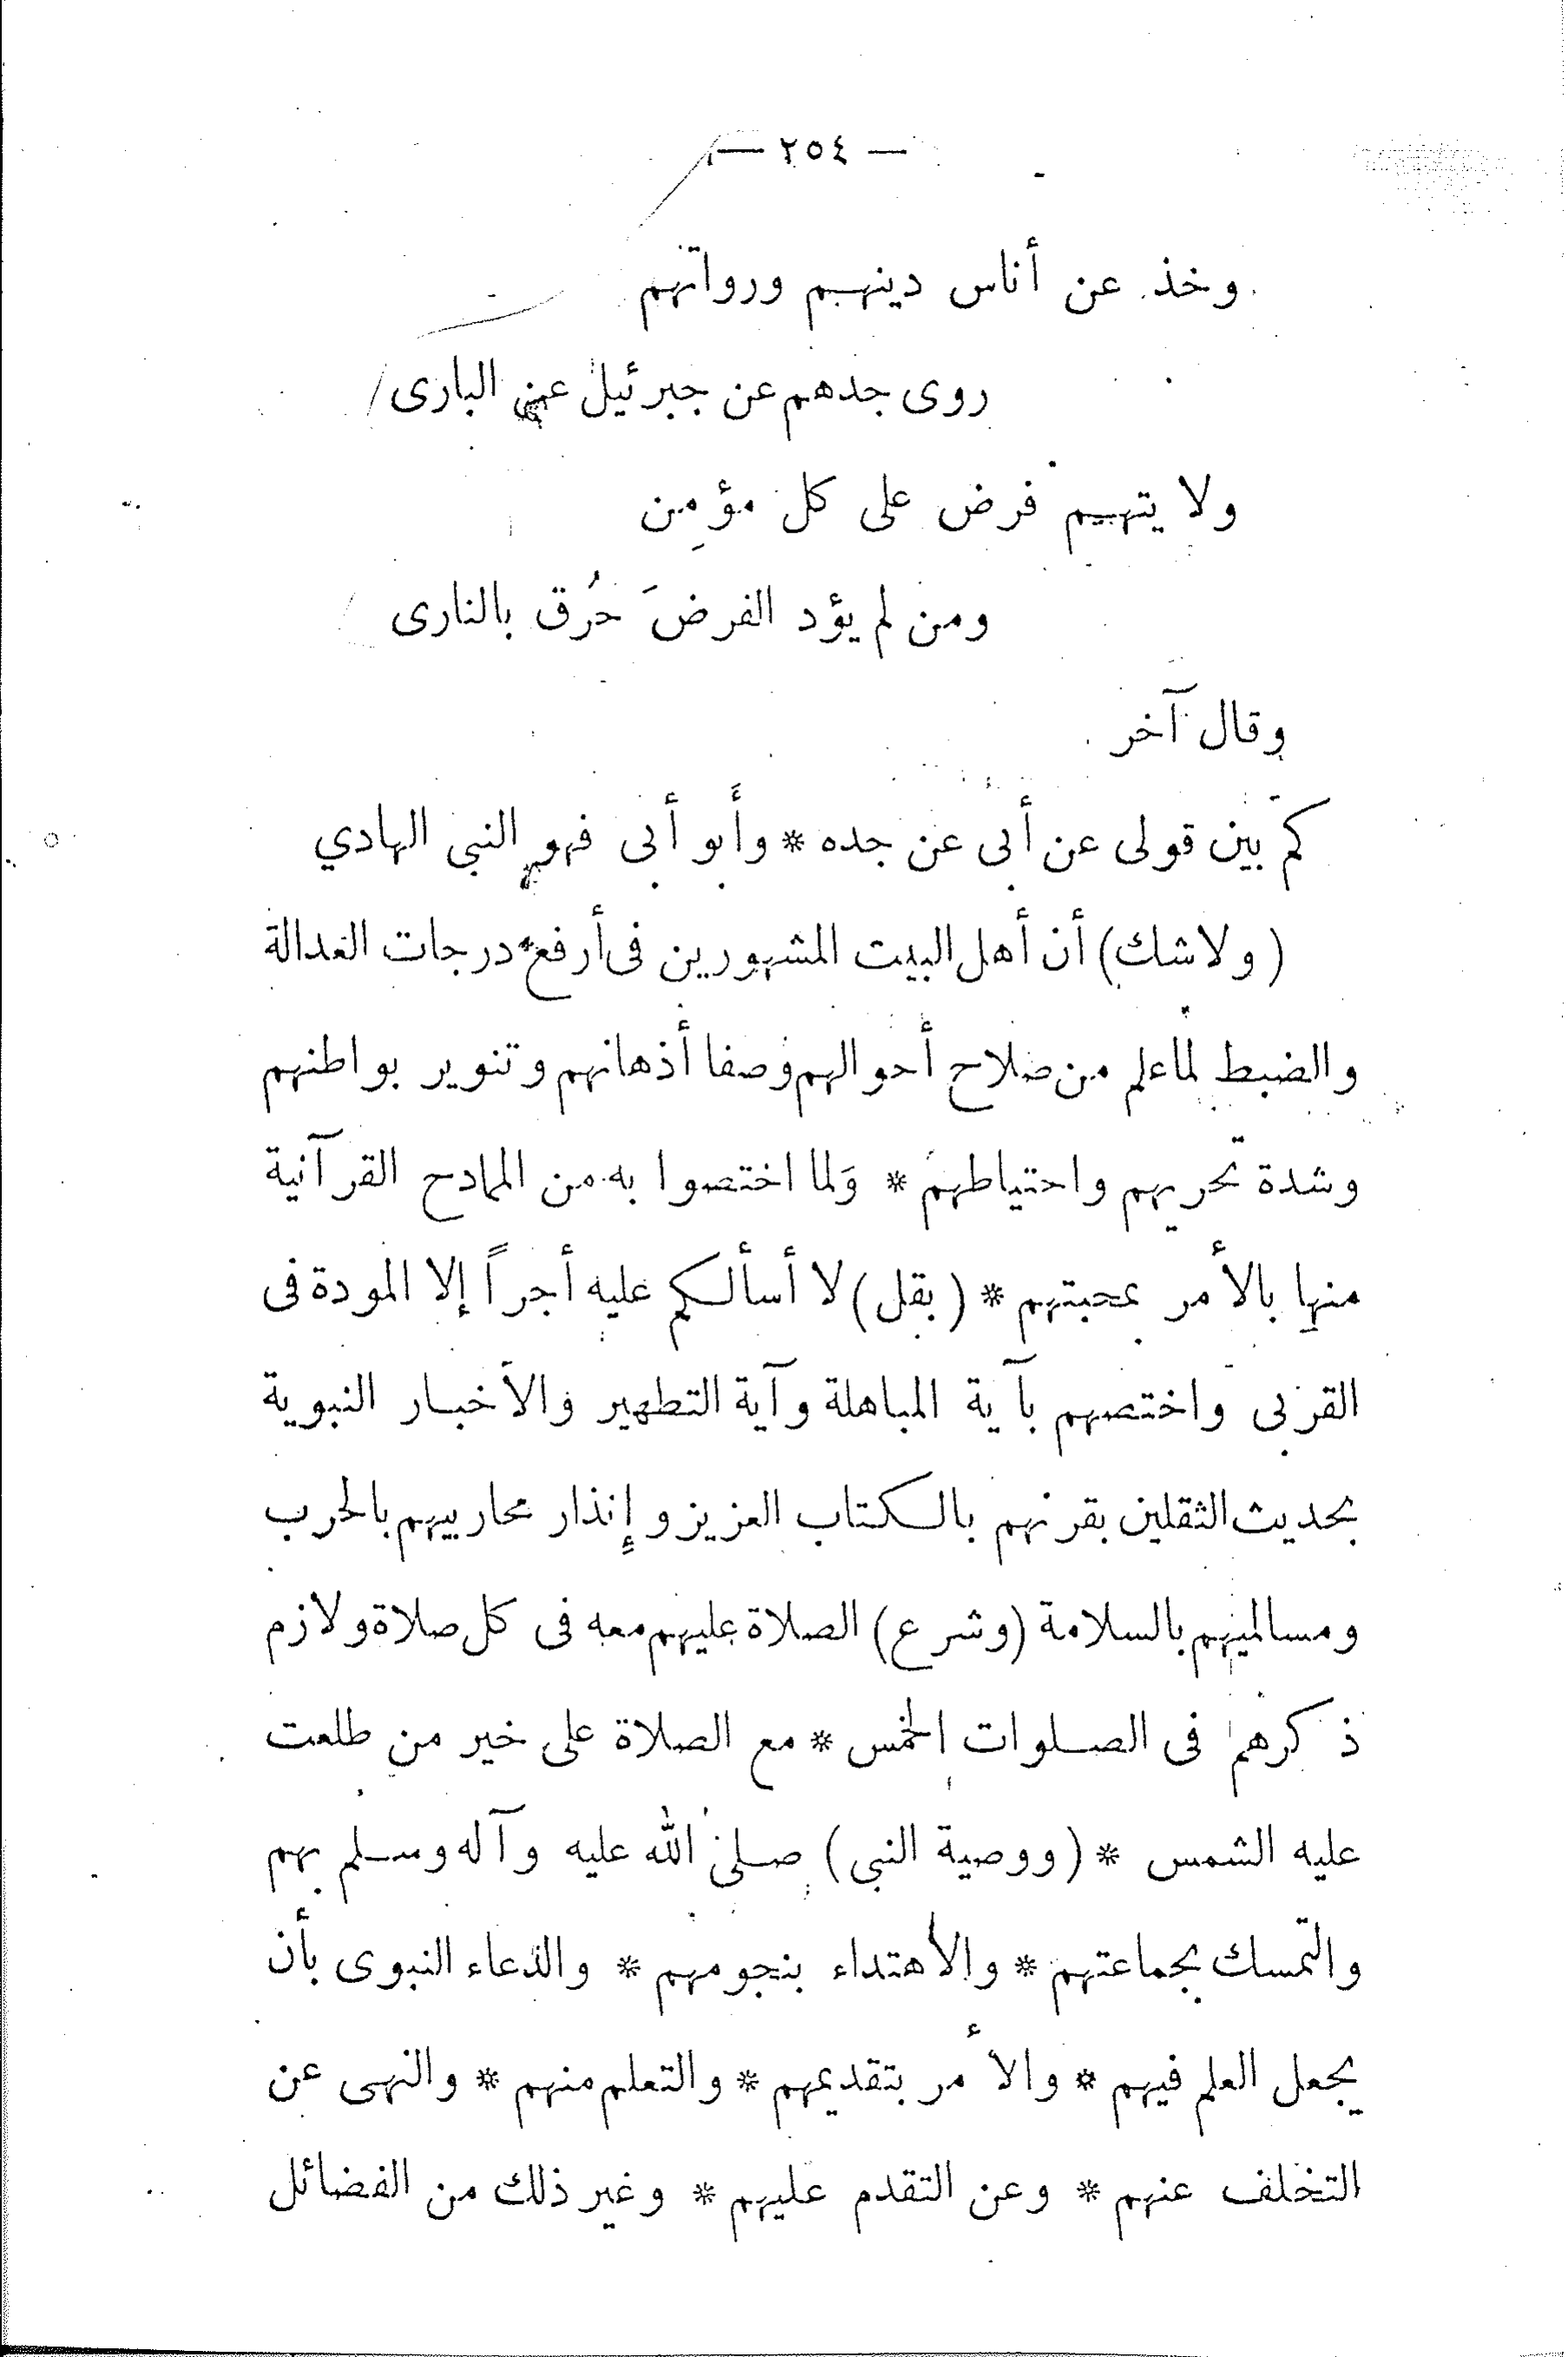 — ٢٥٤ —
وخذ عن أناس دينهم ورواتهم
روى جدهم عن جبرئيل عن البارى
ولا يتهم فرض على كل مؤمن
ومن لم يؤد الفرضَ حُرق بالنارى
وقال آخر
كم بين قولى عن أبى عن جده * وأَبو أبى فهو النبى الهادي
(ولاشك) أن أهل البيت المشهورين فى أرفع درجات العدالة
والضبط لما علم من صلاح أحوالهم وصفا أذهانهم وتنوير بواطنهم
وشدة تحريهم واحتياطهم * وَلما اختصوا به من الممادح القرآنية
منها بالأمر بمحبتهم * (بقل) لا أسألكم عليه أجراً إلا المودة فى
القربى واختصهم بآية المباهلة وآية التطهير والأخبار النبوية
بحديث الثقلين بقرنهم بالكتاب العزيز وإِنذار محاربيهم بالحرب
ومسالميهم بالسلامة (وشرع) الصلاة عليهم معه فى كل صلاة ولازم
ذكرهم فى الصلوات الخمس * مع الصلاة على خير من طلعت
عليه الشمس * (ووصية النبى) صلى الله عليه وآله وسلم بهم
والتمسك بجماعتهم * والأهتداء بنجومهم * والدعاء النبوى بأن
يجعل العلم فيهم * والأمر بتقديمهم * والتعلم منهم * والنهى عن
التخلف عنهم * وعن التقدم عليهم * وغير ذلك من الفضائل